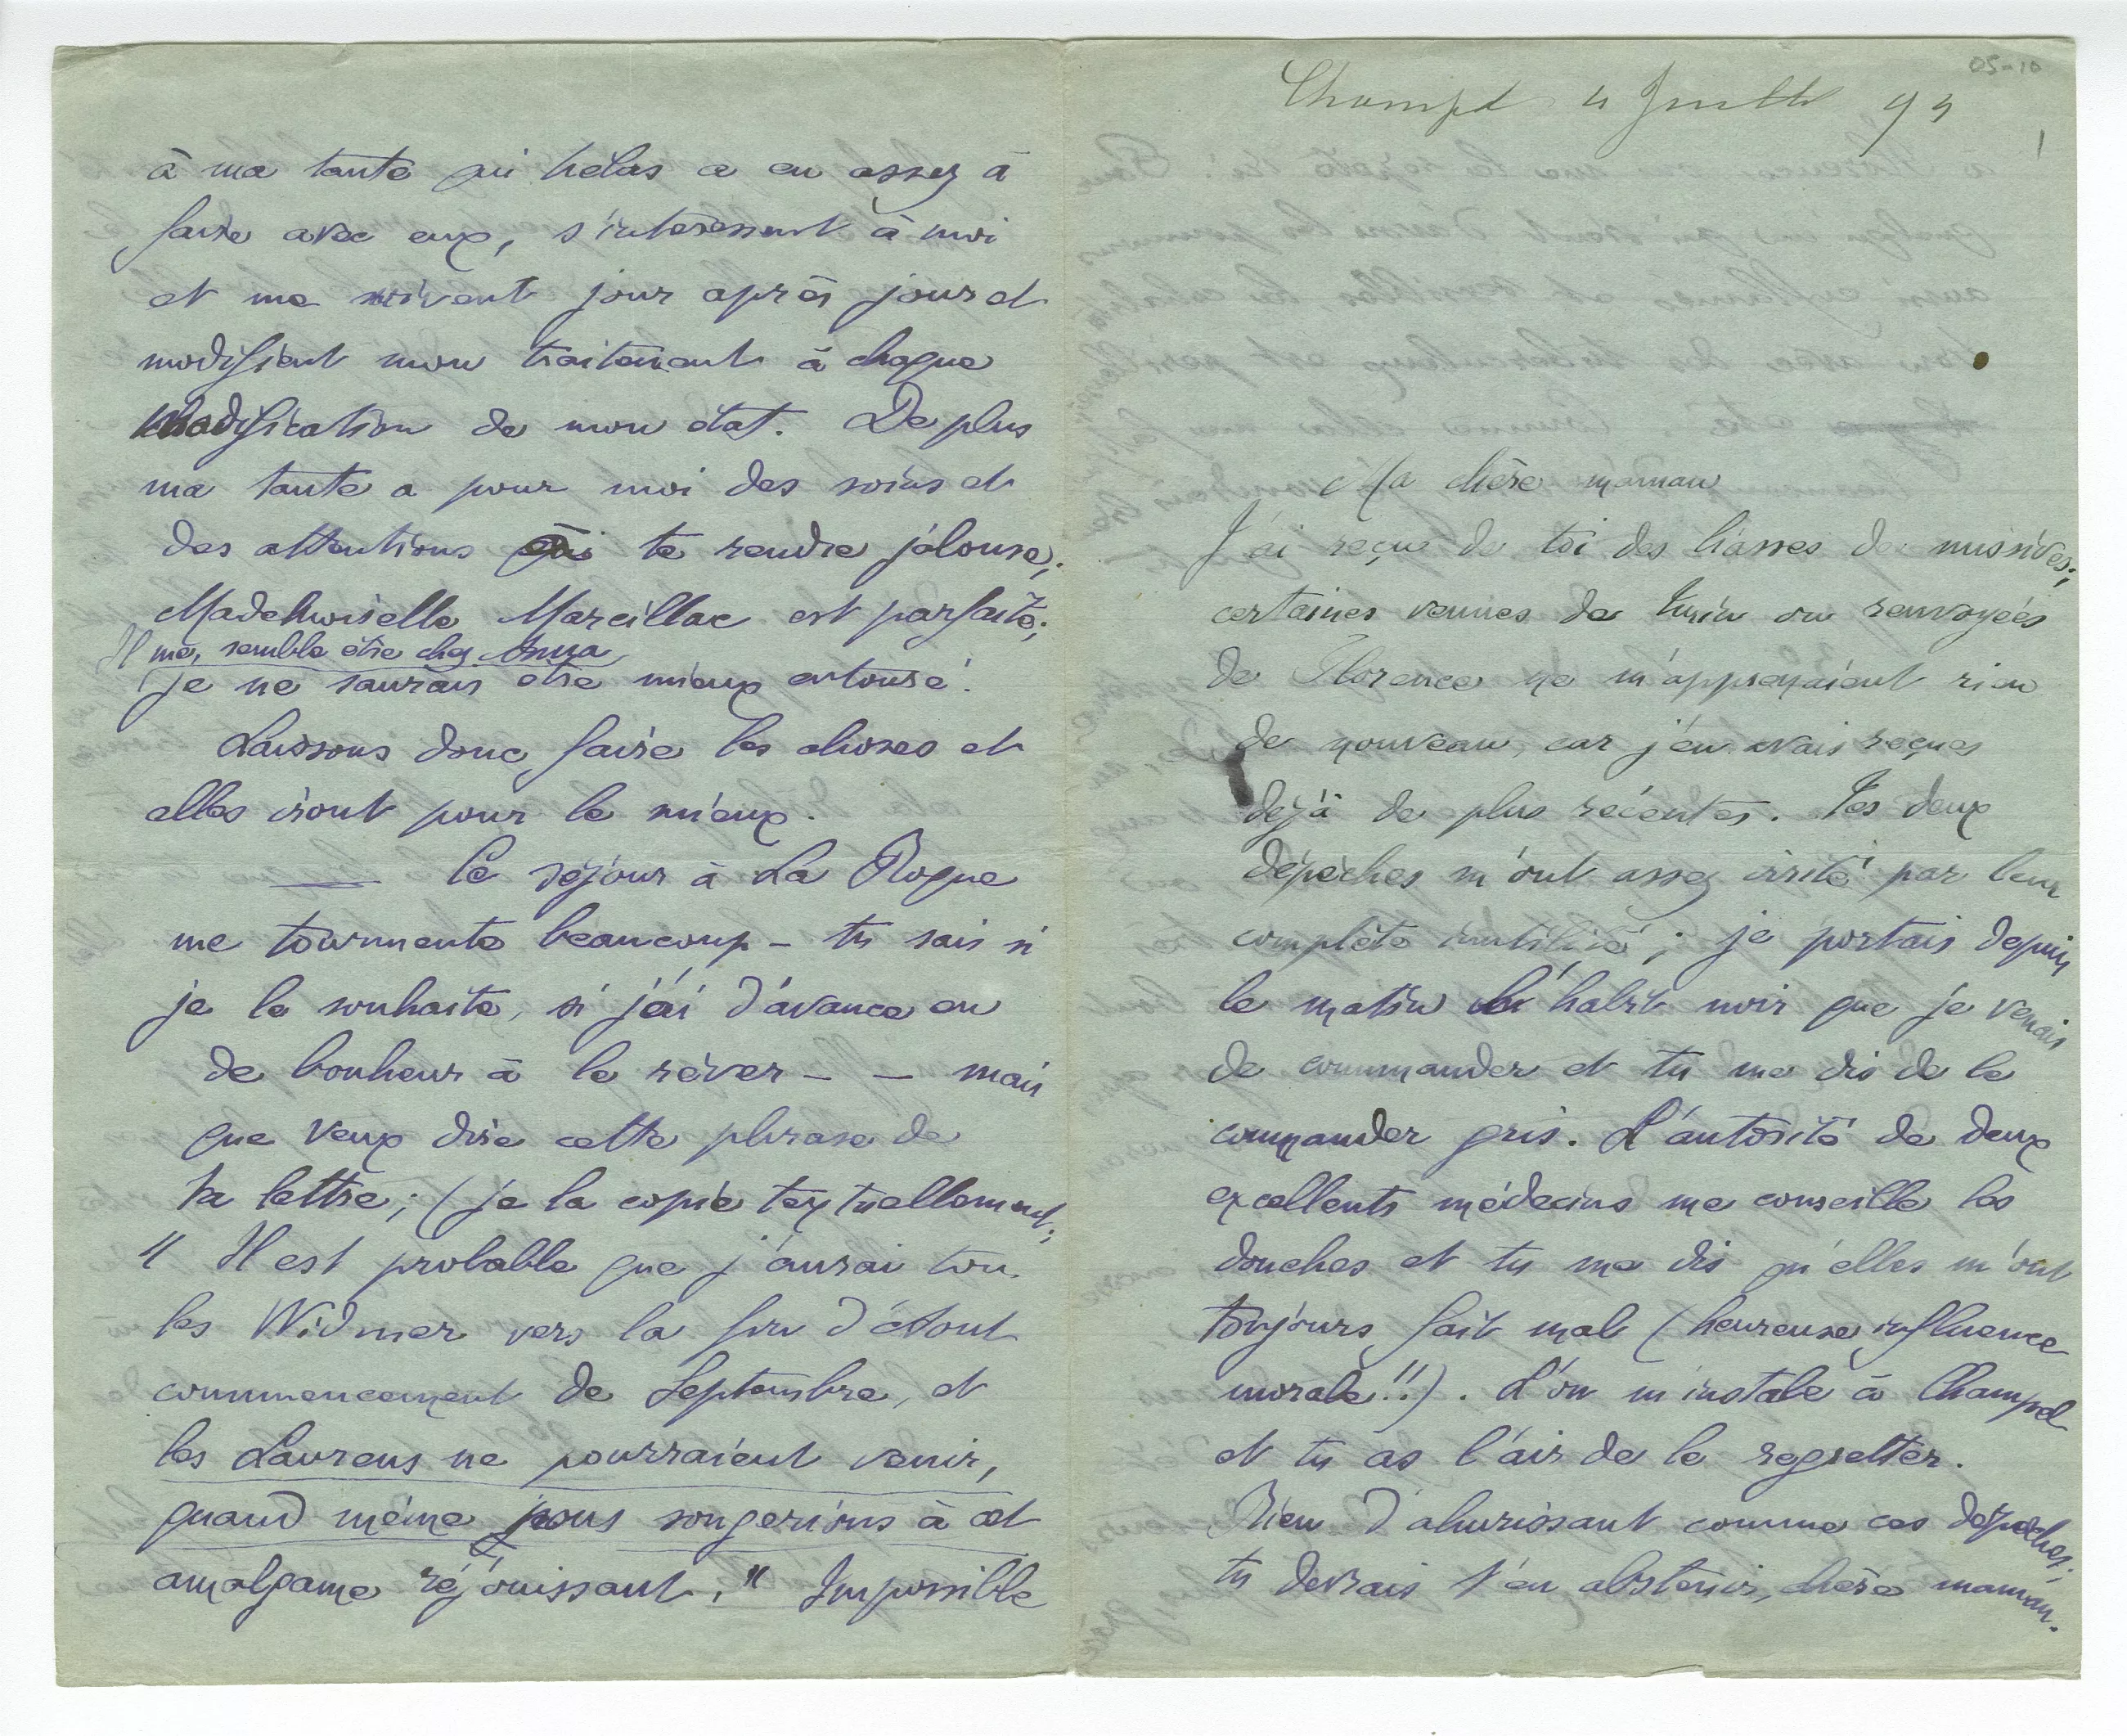 05-10
Champel 4 Juillet 94
1
Ma chère maman
J'ai reçu de toi des liasses de missives;
certaines venues de Turin ou renvoyées
de Florence ne m'apprenaient rien
de nouveau, car j'en avais reçues
déjà de plus récentes. Tes deux
dépêches m'ont assez irrité par leur
complète inutilité; je portais depuis
le matin l'habit noir que je venais
de commander et tu me dis de le
commander gris. L'autorité de deux
excellents médecins me conseille les
douches et tu me dis qu'elles m'ont
toujours fait mal (heureuse influence
morale!!). L'on m'instale à Champel
et tu as l'air de le regretter.
Rien d'ahurissant comme ces dépêches;
tu devrais t'en abstenir, chère maman.
à ma tante qui hélas a eu assez à
faire avec eux, s'intéressent à moi
et me suivent jour après jour et
modifient mon traitement à chaque
modification de mon état. De plus
ma tante a pour moi des soins et
des attentions à te rendre jalouse;
Mademoiselle Marcillac est parfaite;
Il me semble être chez Anna
je ne saurais être mieux entouré.
Laissons donc faire les choses et
elles iront pour le mieux.
— Ce séjour à La Roque
me tourmente beaucoup – tu sais si
je le souhaite, si j'ai d'avance eu
de bonheur à le rêver – – mais
que veux dire cette phrase de
ta lettre; (je la copie textuellement;
" Il est probable que j'aurai tous
les Widmer vers la fin d'Août
commencement de Septembre, et
les Laurens ne pourraient venir,
quand même nous songerions à cet
amalgame réjouissant. " Impossible